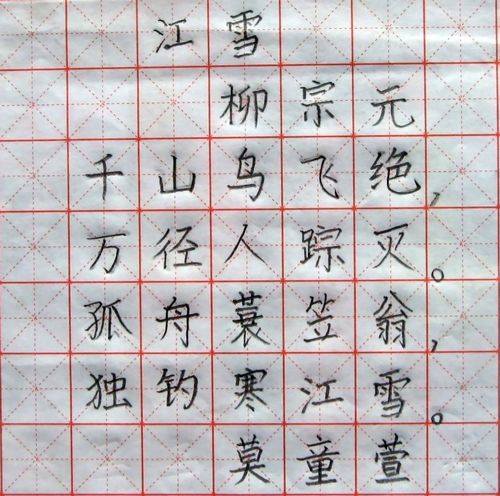 江雪
柳宗元
千山鸟飞绝,
万径人踪灭。
孤舟蓑笠翁,
独钓寒江雪。
莫童萱